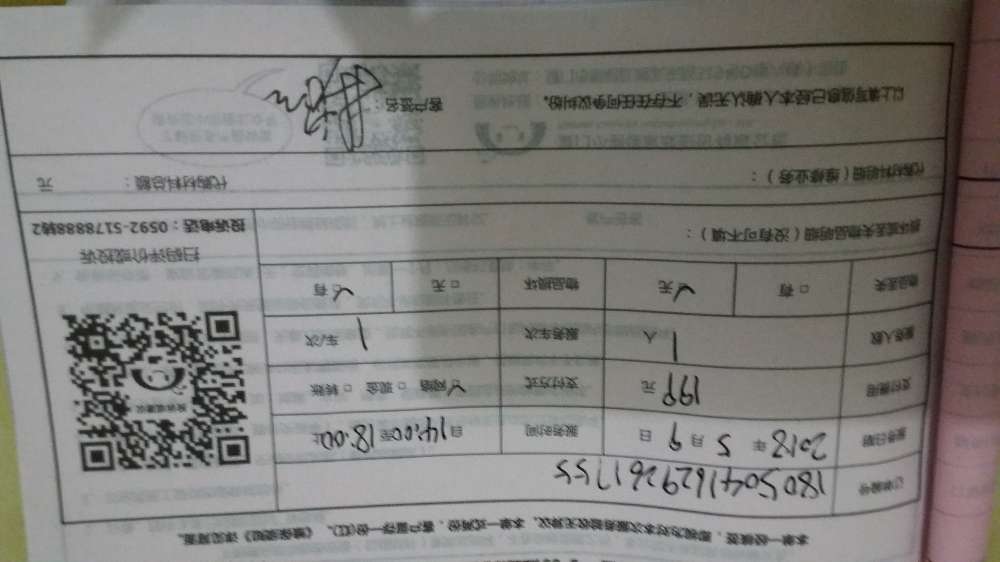 本单一经续签，即视为对本次服务验收无异议，本单一式两份，客户留存一份(红)，《维保须知》详见背面。
订单编号 1805041629261755
服务日期 2018年5月9日 服务时间 自14:00至18:00止
支付费用 199元 支付方式 ☑网络 □现金 □转账
服务人数 1人 服务车次 1车/次
物品丢失 □有 ☑无 物品损坏 □无 ☑有
损坏或丢失物品明细（没有可不填）：
扫码评价或投诉
投诉电话：0592-5178888转2
代购材料明细（维修业务）： 代购材料总额： 元
以上填写信息已经本人确认无误，不存在任何争议纠纷。 客户签名：